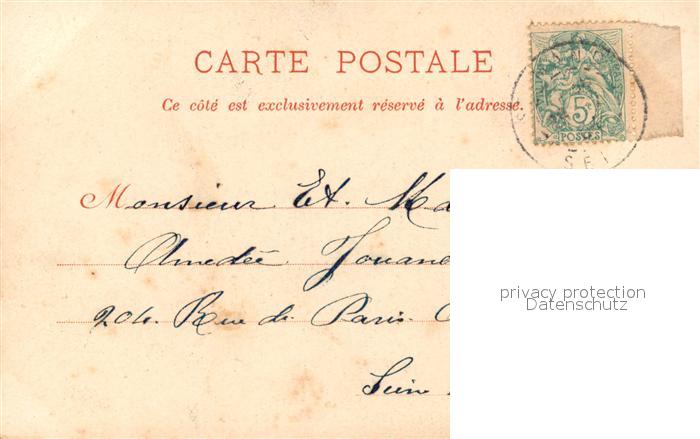 CARTE POSTALE
Ce côté est exclusivement réservé à l'adresse.
5c
POSTES
Monsieur Et. Ma
Amedée Jouan
204. Rue de Paris.
privacy protection
Datenschutz